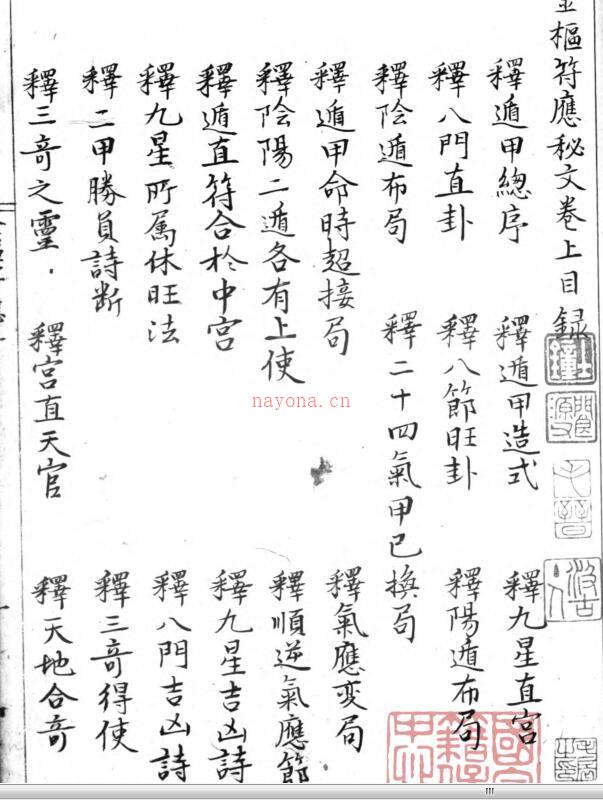 金樞符應秘文卷上目録
釋遁甲總序 釋遁甲造式 釋九星直宮
釋八門直卦 釋八節旺卦 釋陽遁布局
釋陰遁布局 釋二十四氣甲已換局
釋遁甲命時超接局 釋氣應変局
釋陰陽二遁各有上使 釋順逆氣應節
釋遁直符合於中宮 釋九星吉凶詩
釋九星所属休旺法 釋八門吉凶詩
釋二甲勝負詩断 釋三奇得使
釋三奇之靈 釋宮直天官 釋天地合奇
nayona.cn